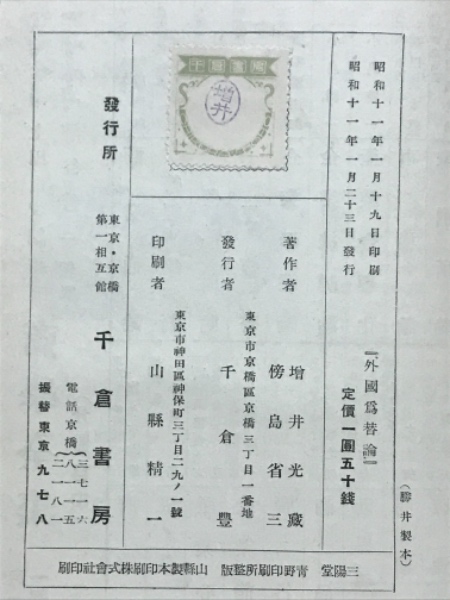 昭和十一年一月十九日印刷
昭和十一年一月二十三日發行
『外國爲替論』
定價一圓五十錢
(勝井製本)
著作者
增井光藏
傍島省三
東京市京橋區京橋三丁目一番地
發行者
千倉豐
東京市神田區神保町三丁目二九ノ一號
印刷者
山縣精一
千倉書房
增井
發行所
東京・京橋
第一相互館
千倉書房
電話京橋
三七一六
八一一五
二一八一
振替東京九七八
三陽堂 靑野印刷所整版 山縣製本印刷株式會社印刷